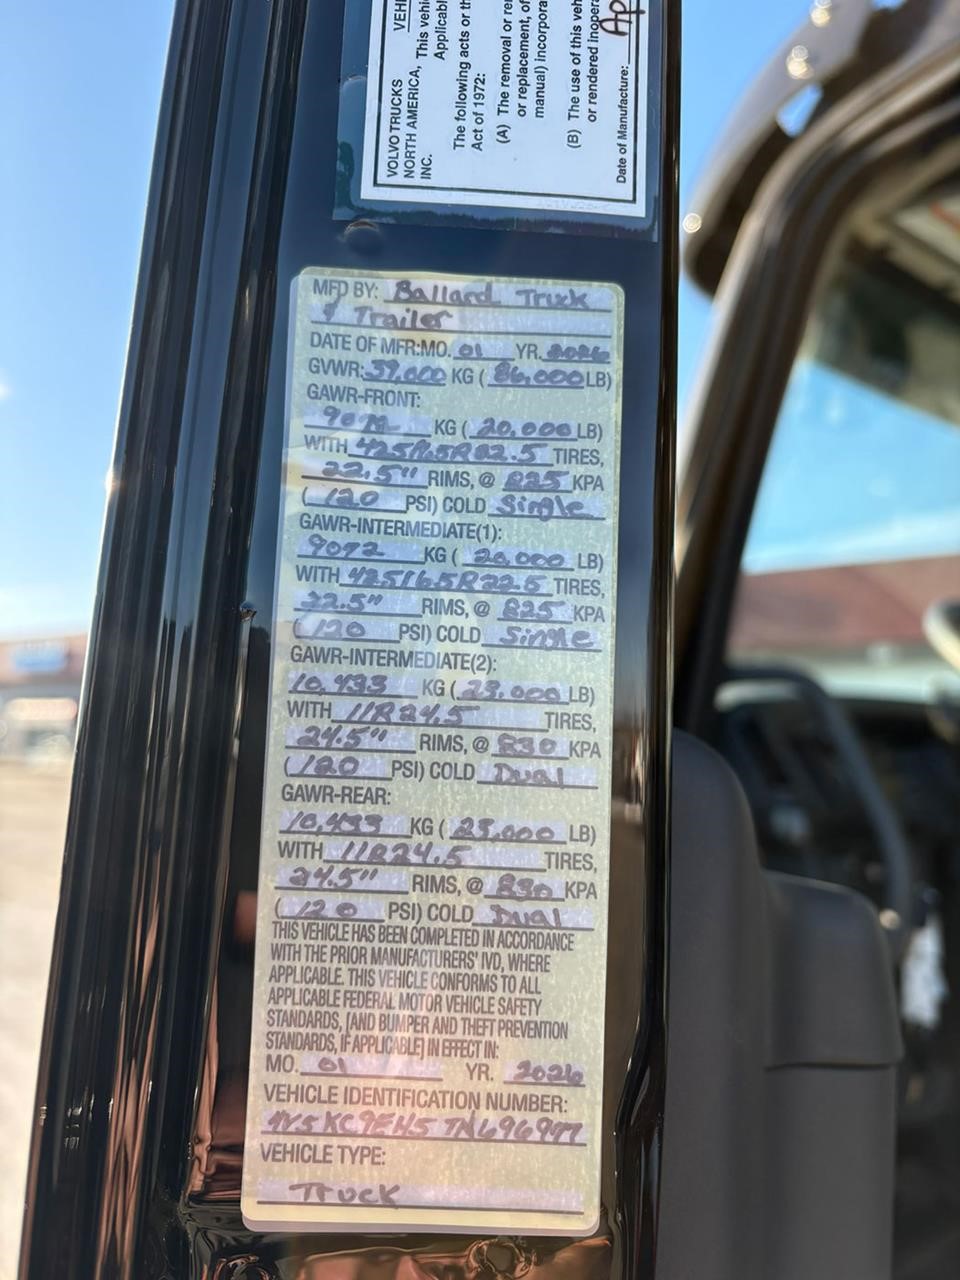 VOLVO TRUCKS
NORTH AMERICA,
INC.
VEHI
This vehic
Applicabl
The following acts or th
Act of 1972:
(A) The removal or re
or replacement, of
manual) incorpora
(B) The use of this veh
or rendered inopera
Date of Manufacture: Ap
MFD BY: Ballard Truck
& Trailer
DATE OF MFR:MO. 01 YR. 2026
GVWR: 39,000 KG ( 86,000 LB)
GAWR-FRONT:
9072 KG ( 20,000 LB)
WITH 425/65R22.5 TIRES,
22.5" RIMS, @ 825 KPA
( 120 PSI) COLD Single
GAWR-INTERMEDIATE(1):
9072 KG ( 20,000 LB)
WITH 425/65R22.5 TIRES,
22.5" RIMS, @ 825 KPA
( 120 PSI) COLD Single
GAWR-INTERMEDIATE(2):
10,433 KG ( 23,000 LB)
WITH 11R24.5 TIRES,
24.5" RIMS, @ 830 KPA
( 120 PSI) COLD Dual
GAWR-REAR:
10,433 KG ( 23,000 LB)
WITH 11R24.5 TIRES,
24.5" RIMS, @ 830 KPA
( 120 PSI) COLD Dual
THIS VEHICLE HAS BEEN COMPLETED IN ACCORDANCE
WITH THE PRIOR MANUFACTURERS' IVD, WHERE
APPLICABLE. THIS VEHICLE CONFORMS TO ALL
APPLICABLE FEDERAL MOTOR VEHICLE SAFETY
STANDARDS, [AND BUMPER AND THEFT PREVENTION
STANDARDS, IF APPLICABLE] IN EFFECT IN:
MO. 01 YR. 2026
VEHICLE IDENTIFICATION NUMBER:
4V5KC9EH5TN696947
VEHICLE TYPE:
Truck